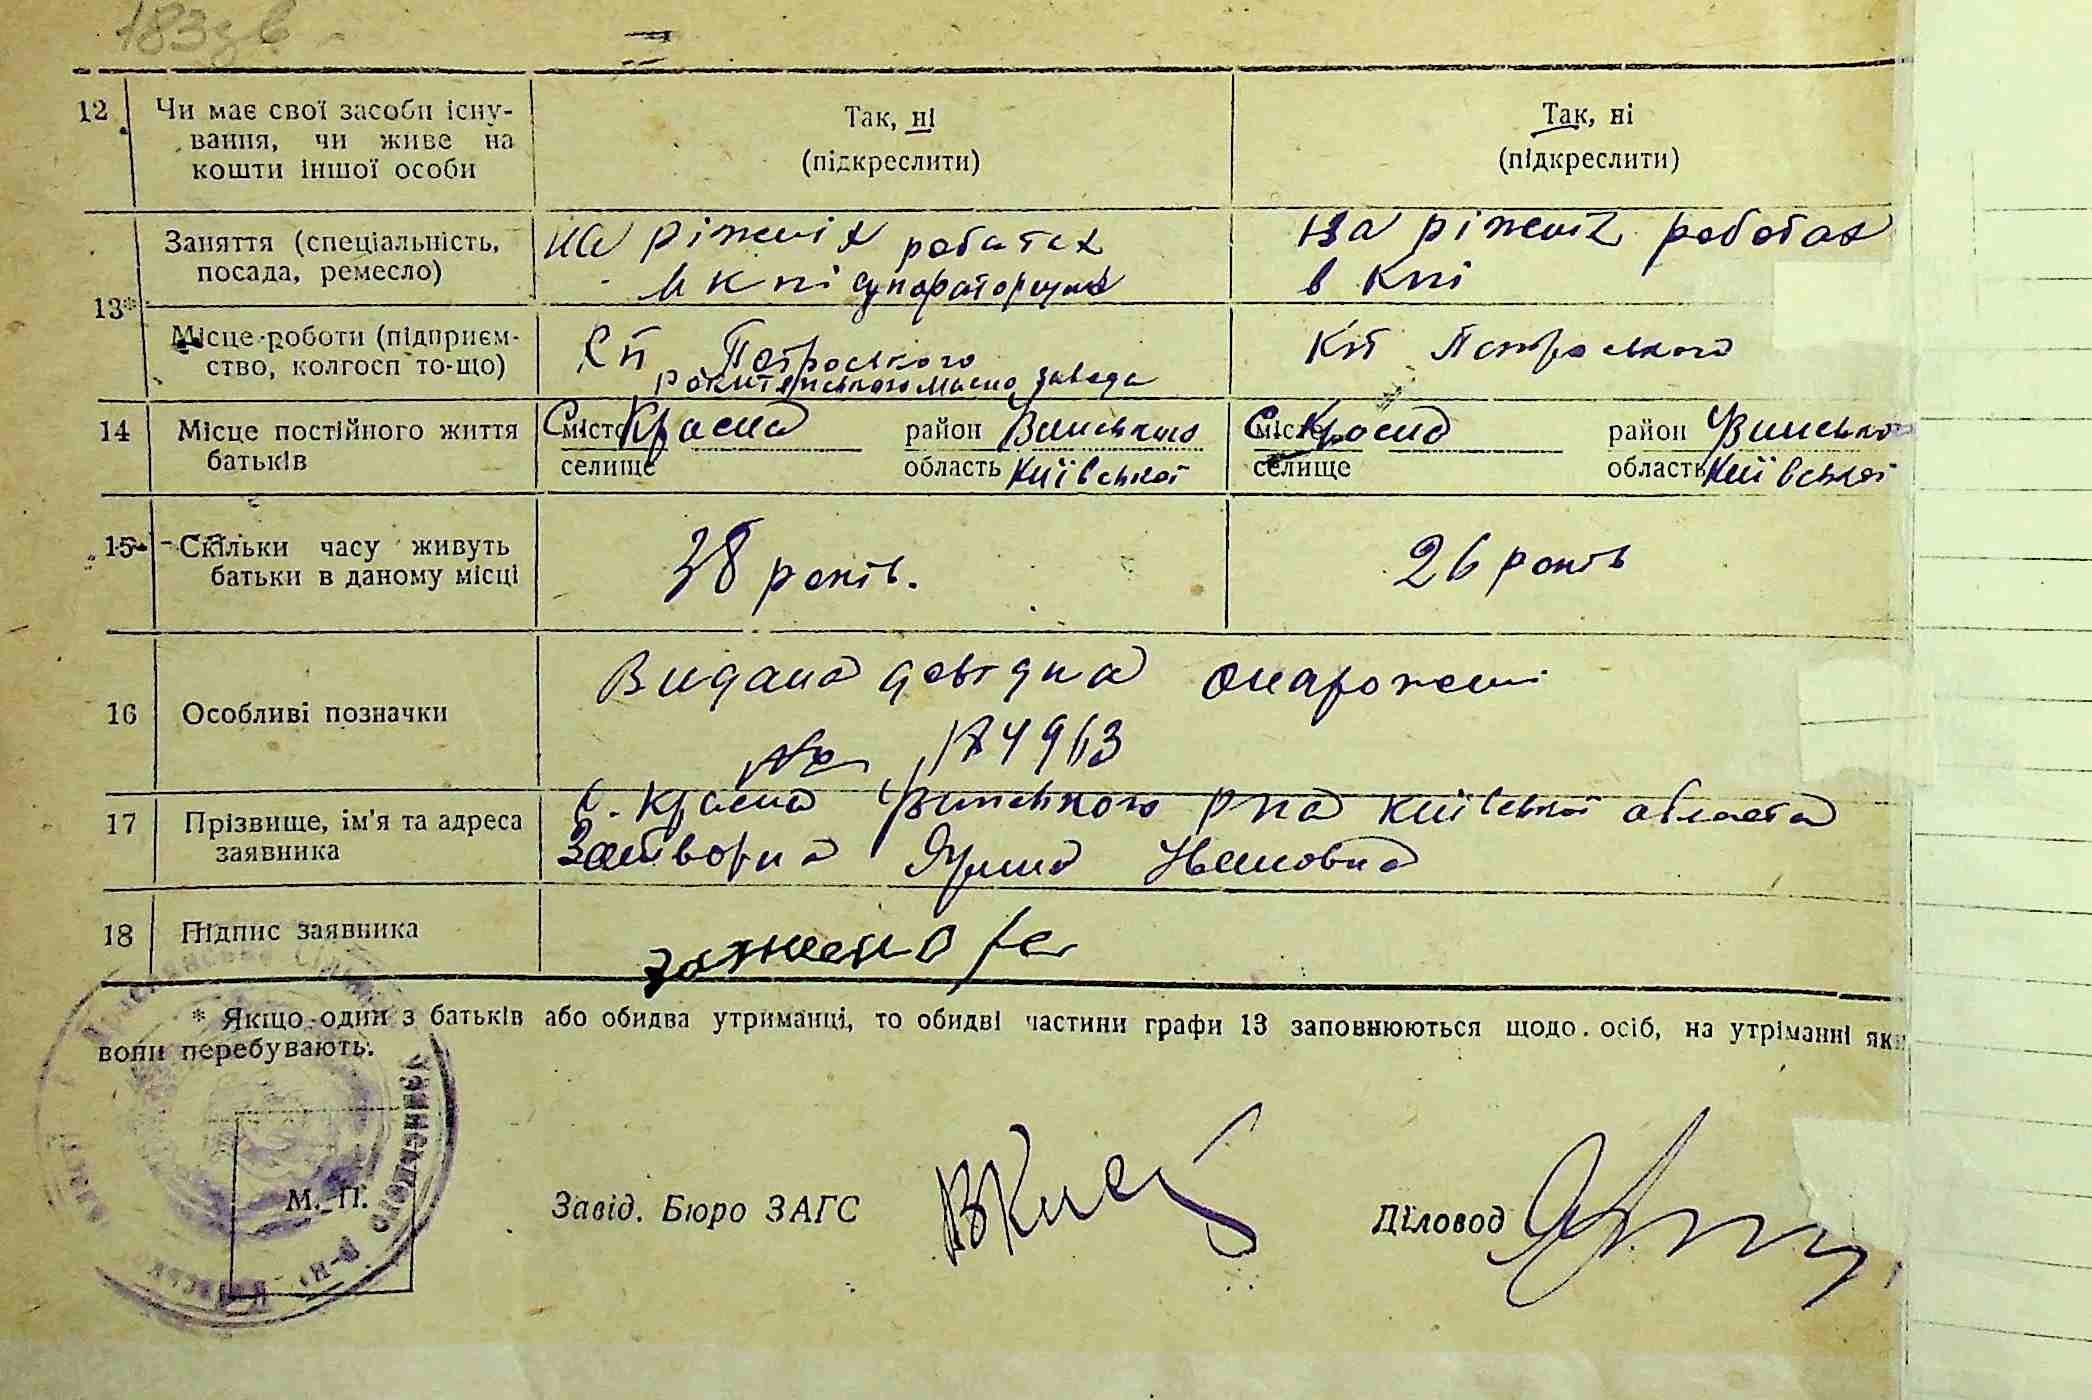 183 зв
12 Чи має свої засоби існу-
вання, чи живе на
кошти іншої особи
Так, ні
(підкреслити)
Так, ні
(підкреслити)
13*
Заняття (спеціальність,
посада, ремесло)
на ріжніх роботах
в кпі сипараторщик
на ріжніх роботах
в кпі
Місце роботи (підприєм-
ство, колгосп то-що)
Петровського
рокитянського масло завода
кпі Петровського
14 Місце постійного життя
батьків
С місто Красна район Узинського
селище область Київської
С місто Красна район Узинсько
селище область Київської
15 Скільки часу живуть
батьки в даному місці
38 років.
26 років
16 Особливі позначки
Видана довідка о народжені
№ 174963
17 Прізвище, ім'я та адреса
заявника
с. Красна Узинського р на Київської область
Затворна Ярина Івановна
18 Підпис заявника
* Якщо один з батьків або обидва утриманці, то обидві частини графи 13 заповнюються щодо осіб, на утріманні яки
вони перебувають.
Узинського р-ну
М. П.
Завід. Бюро ЗАГС
Діловод